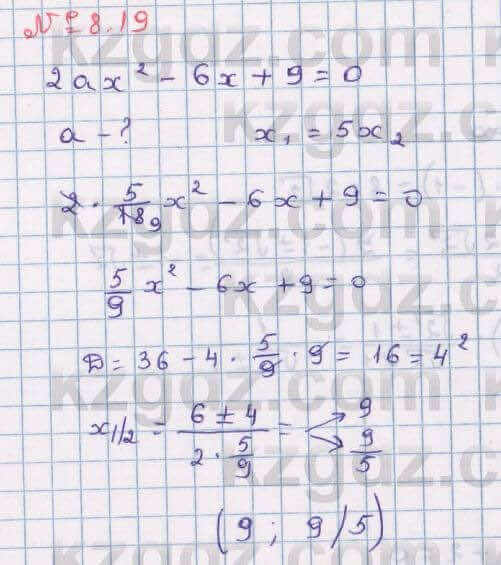 № 8.19
2ax² - 6x + 9 = 0
a - ? x₁ = 5x₂
2 · 5/18 9 x² - 6x + 9 = 0
5/9 x² - 6x + 9 = 0
D = 36 - 4 · 5/9 · 9 = 16 = 4²
x₁/₂ = (6 ± 4)/(2 · 5/9) = 9
9/5
(9 ; 9/5)
kzgdz.com